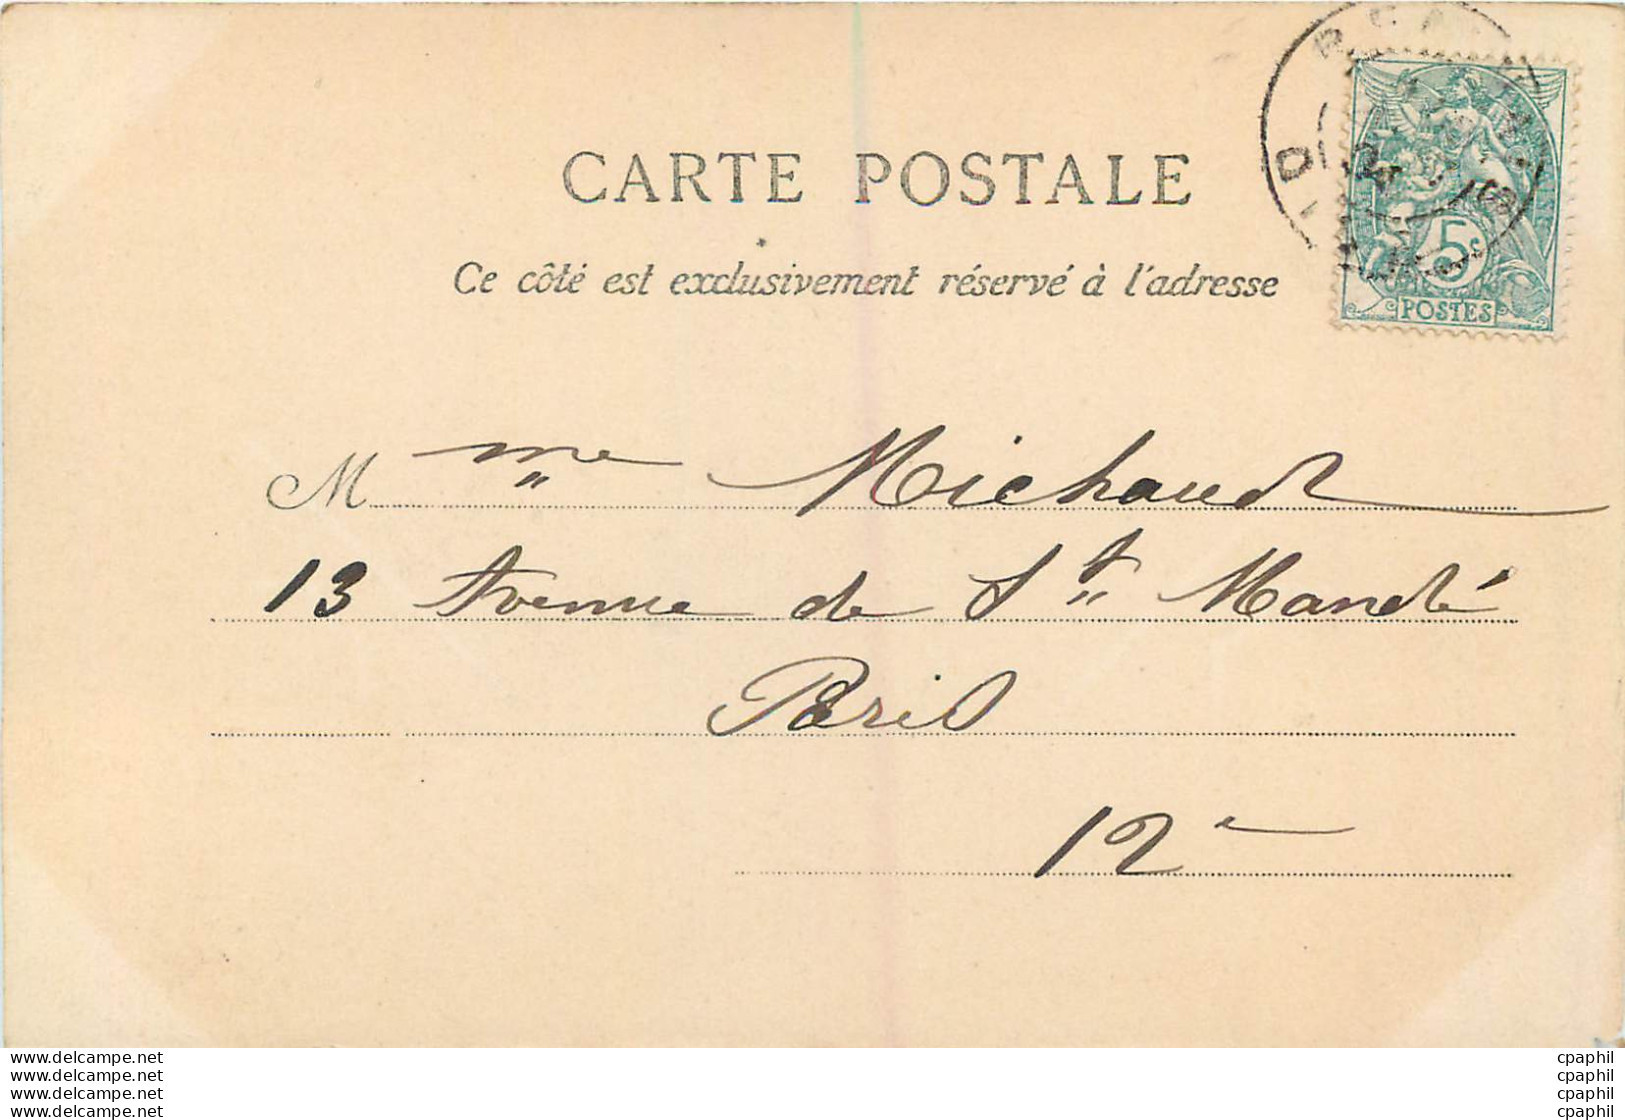 CARTE POSTALE
Ce côté est exclusivement réservé à l'adresse
5c
POSTES
Mme Michaud
13 Avenue de St Mandé
Paris
12e
www.delcampe.net
www.delcampe.net
www.delcampe.net
www.delcampe.net
cpaphil
cpaphil
cpaphil
cpaphil